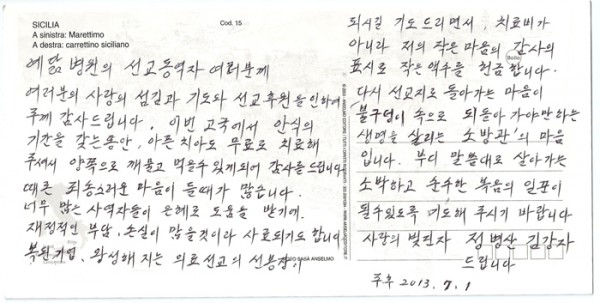 SICILIA
A sinistra: Marettimo
A destra: carrettino siciliano
Cod. 15
예닮 병원의 선교동역자 여러분께
여러분의 사랑의 섬김과 기도와 선교후원을 인하여
주께 감사드립니다. 이번 고국에서 안식의
기간을 갖는동안, 아픈 치아도 무료로 치료해
주셔서 양쪽으로 깨물고 먹을수 있게되어 감사를 드립니다.
때론 죄송스러운 마음이 들때가 많습니다.
너무 많은 사역자들이 은혜로 도움을 받기에.
재정적인 부담, 손실이 많을것이라 사료되기도 합니다.
복된 기업, 왕성해 지는 의료선교의 선봉장이
되시길 기도드리면서, 치료비가
아니라 저의 작은 마음의 감사의
표시로 작은 액수를 헌금합니다.
다시 선교지로 돌아가는 마음이
불구덩이 속으로 되돌아 가야만하는
생명을 살리는 소방관"의 마음
입니다. 부디 말씀대로 살아가는
소박하고 순수한 복음의 일꾼이
될수있도록 기도해 주시기 바랍니다
사랑의 빚진자 정병산 김강자
드립니다
주후 2013. 7. 1